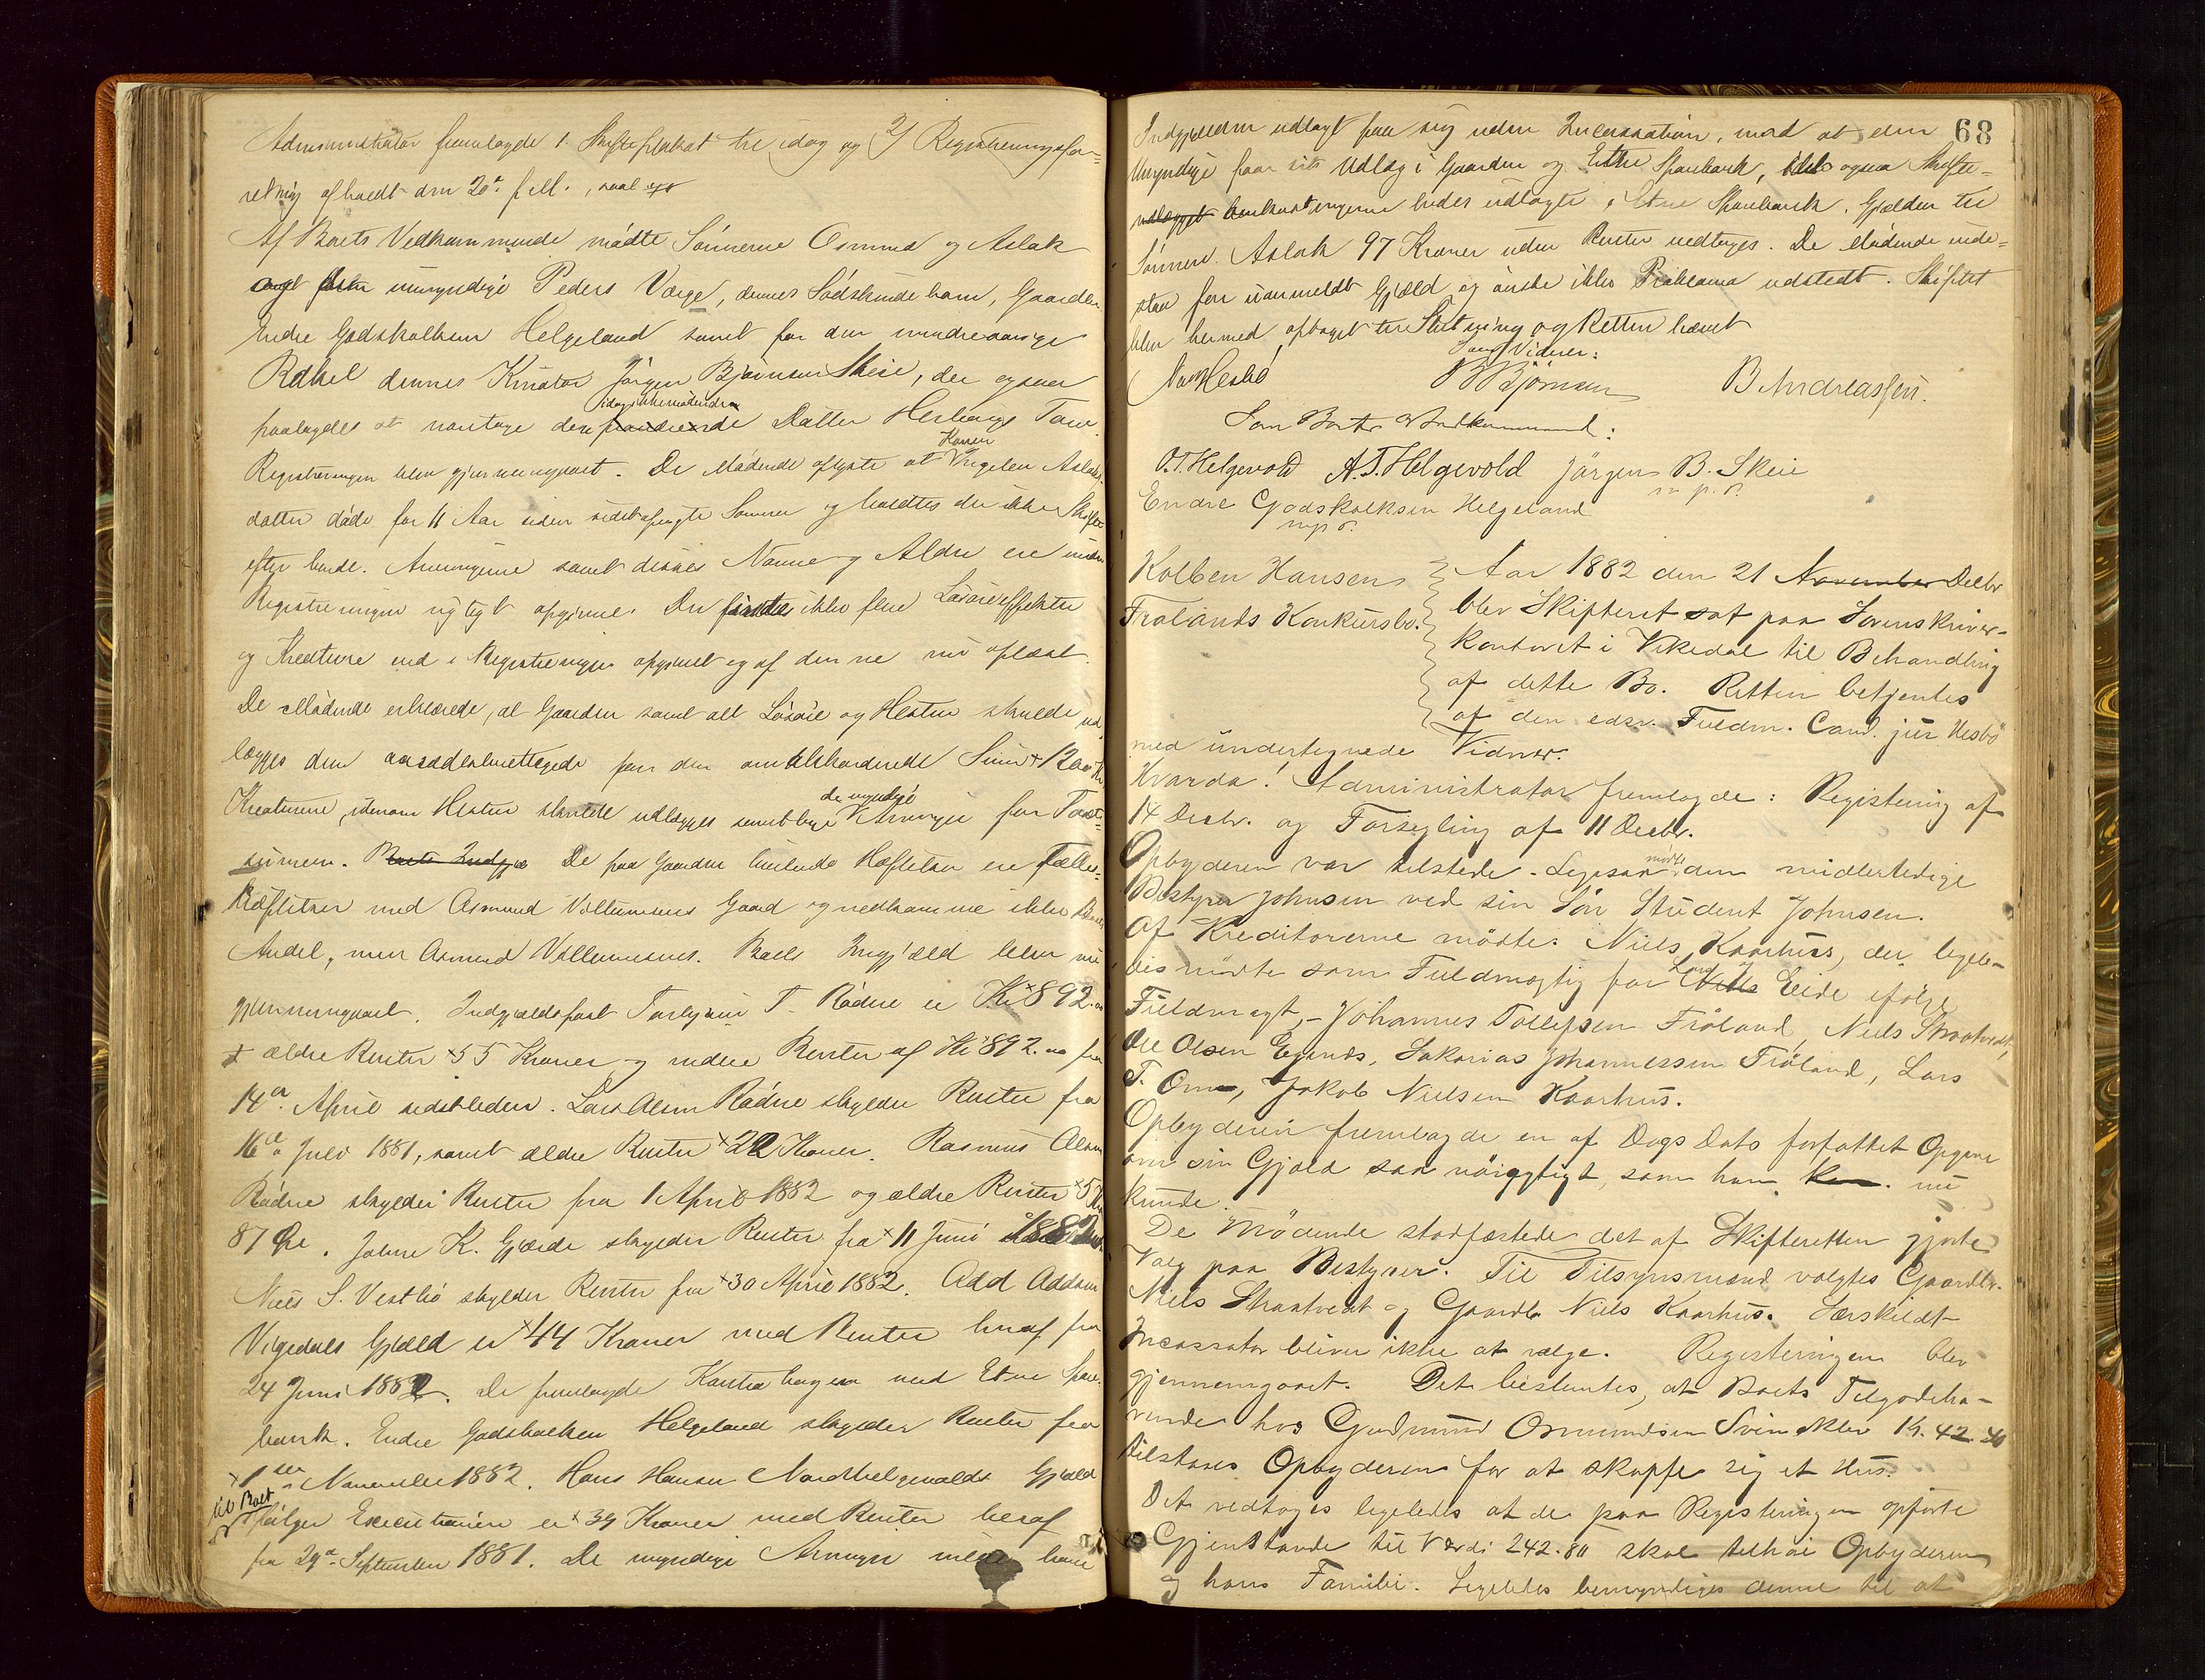 Administrator fremlagde 1. Skifteplakat til idag og 2/ Registreringsfor-
retning afholdt den 20de f. M.
Af Boets Vedkommende mødte Sønnerne Osmund og Aslak
umyndige Peders Værge, dennes Sødskindebarn, Gaardbr.
Endre Godskalksen Helgeland samt for den mindreaarige
Rakel dennes Kurator Jørgen Bjørnsen Skeie, der ogsaa
idag ikke mødende
paalagdes at varetage den Datter Herborgs Tarv.
Karen
Registreringen blev gjennemgaaet. De Mødende oplyste at Aslaks-
datter døde for 11 Aar siden sidstafvigte Sommer og holdtes der ikke Skifte
efter hende. Arvingerne samt disses Navne og Aldre ere under
Registreringen rigtigt opgivne. Der findes ikke flere Løsøreeffekter
og Kreature end i Registreringen opgivet og af denne nu oplæst.
De Mødende erklærede, at Gaarden samt alt Løsøre og Hesten skulde ud-
lægges den aasædesberettigede for den omtalshandlede Sum 1200 Kr
de myndige
Kreaturene, udenom Hesten skulde udlægges samtlige Arvinger for Taxt-
summen. De paa Gaarden hvilende Hæftelser ere Fælles-
Hæftelser med Osmund Vollumsnes Gaard og vedkomme ikke Boets
Andel, men Osmund Vollumsnes. Boets Indgjæld blev nu
gjennemgaaet. Indgjældspost Torbjørn T. Rødne er Kr 892.00
+ ældre Renter 55 Kroner og videre Renter af Kr 892.00 fra
14de April sidstleden. Lars Olsen Rødne skylder Renter fra
16de Juli 1881, samt ældre Renter 22 Kroner. Rasmus Olsen
Rødne skylder Renter fra 1 April 1882 og ældre Renter 5 Kr
87 Øre. Johne K. Gjærde skylder Renter fra 11 Juni 1882.
Niels S. Vestbø skylder Renter fra 30 April 1882. Add Addsen
Vigedals Gjæld er 44 Kroner med Renter heraf fra
24 Juni 1882. De fremlagde Kontrabogen med Etne Spare-
bank. Endre Godskalksen Helgeland skylder Renter fra
1ste November 1882. Hans Hansen Nordhelgevolds Gjæld
til Boet
ifølge Executionen er 39 Kroner med Renter heraf
fra 29de September 1881. De myndige Arvinger ville have
68
Indgjælden udlagt paa sig uden Incassation, mod at den
Umyndige faar sit Udlæg i Gaarden og Etne Sparebank, ogsaa Skifte-
omkostningerne bedes udlagte i Etne Sparebank. Gjælden til
Sønnen Aslak 97 Kroner uden Renter vedtoges. De Mødende inde-
staa for uanmeldt Gjæld og ønske ikke Proklama udstedt. Skiftet
blev hermed optaget til Slutning og Retten hævet
Som Vidner:
Hesbø B Bjørnsen B Andreassen.
Som Boets Vedkommende:
O. T. Helgevold A. T. Helgevold Jørgen B. Skeie
m. p. P.
Endre Godskalksen Helgeland
m. p. P.
Kolben Hansen
Frølands Konkursbo.
Aar 1882 den 21 November Decbr
blev Skifteret sat paa Sorenskriver-
kontoret i Vikedal til Behandling
af dette Bo. Retten betjentes
af den edsv. Fuldm. Cand. jur Hesbø
med undertegnede Vidner.
Hvorda! Administrator fremlagde: Registering af
14 Decbr. og Forsegling af 11 Decbr.
Opbyderen var tilstede. Ligesaa mødte den midlertidige
Bestyrer Johnsen ved sin Søn Student Johnsen.
Af Kreditorerne mødte: Niels Kaarhus, der ligele-
des mødte som Fuldmægtig for Lars Eide ifølge
Fuldmagt, - Johannes Tollefsen Frøland, Niels Straatvedt,
Ole Olsen Egnes, Sakarias Johannessen Frøland, Lars
T. Omn, Jakob Nielsen Kaarhus.
Opbyderen fremlagde en af Dags Dato forfattet Opgave
om sin Gjæld saa nøiagtigt, som han kun. nu
kunde.
De Mødende stadfæstede det af Skifteretten gjorte
Valg paa Bestyrer. Til Tilsynsmænd valgtes Gaardbr.
Niels Straatvedt og Gaardbr Niels Kaarhus. Særskildt
Incassator bliver ikke at vælge. Registeringen blev
gjennemgaaet. Det besluttes, at Boets Tilgodeha-
vende hos Gudmund Osmundsen Svineklev Kr. 42.40
tilstaaes Opbyderen for at skaffe sig et Hus.
Det vedtoges ligeledes at de paa Registeringen opførte
Gjenstande til Værdi 242.80 skal tilhøre Opbyderen
og hans Familie. Ligeledes bemyndiges denne til at